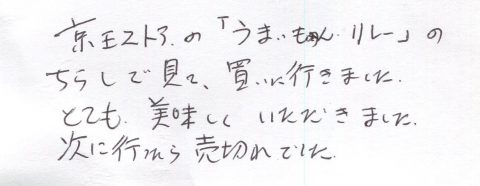 京王ストアの「うまいもん リレー」の
ちらしで見て、買いに行きました.
とても 美味しく いただきました.
次に行ったら 売切れでした.